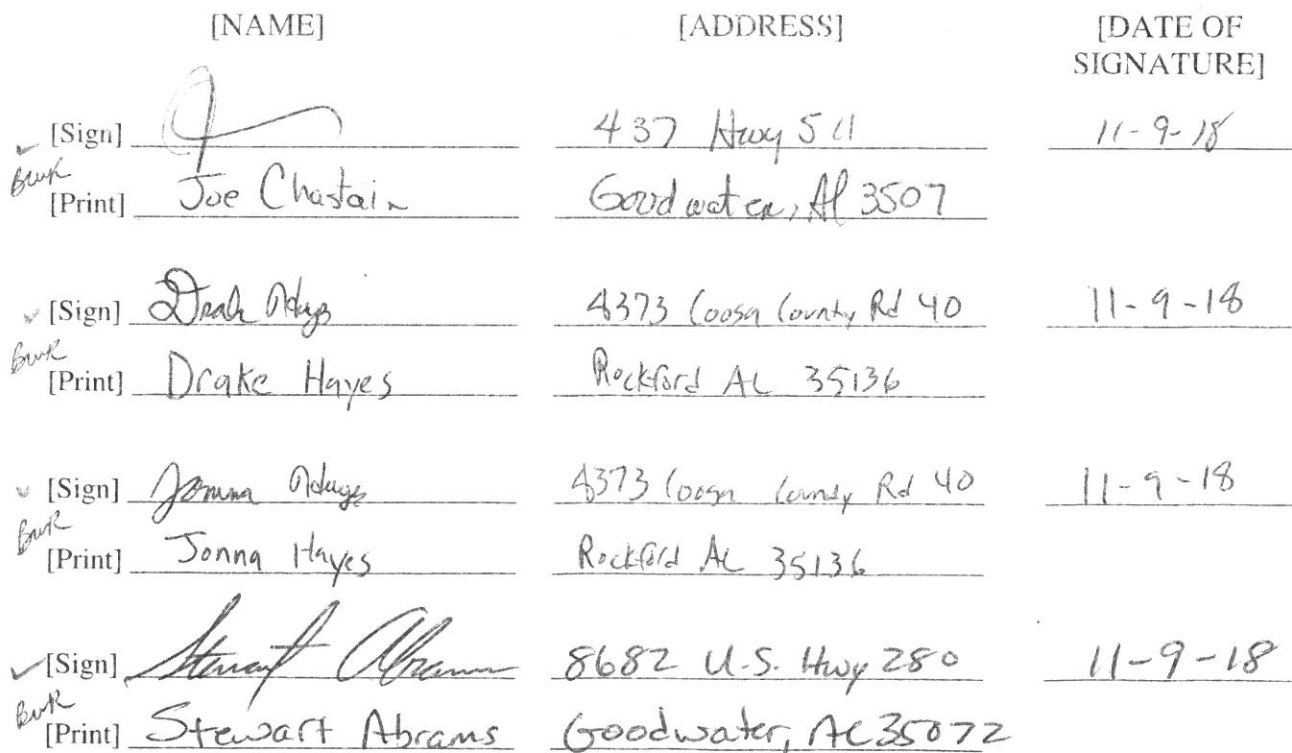 [NAME] [ADDRESS] [DATE OF
SIGNATURE]
[Sign] 437 Hwy 511 11-9-18
BWR
[Print] Joe Chastain Goodwater, Al 3507
[Sign] Drake Hayes 4373 Coosa County Rd 40 11-9-18
BWR
[Print] Drake Hayes Rockford AL 35136
[Sign] Jonna Hayes 4373 Coosa County Rd 40 11-9-18
BWR
[Print] Jonna Hayes Rockford AL 35136
[Sign] Stewart Abrams 8682 U.S. Hwy 280 11-9-18
BWR
[Print] Stewart Abrams Goodwater, AL 35072